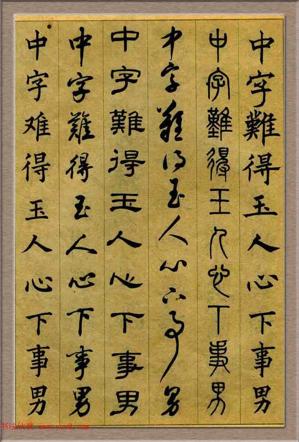 中字難得玉人心下事男
中字難得玉人心下事男
中字難得玉人心下事男
中字難得玉人心下事男
中字難得玉人心下事男
中字难得玉人心下事男